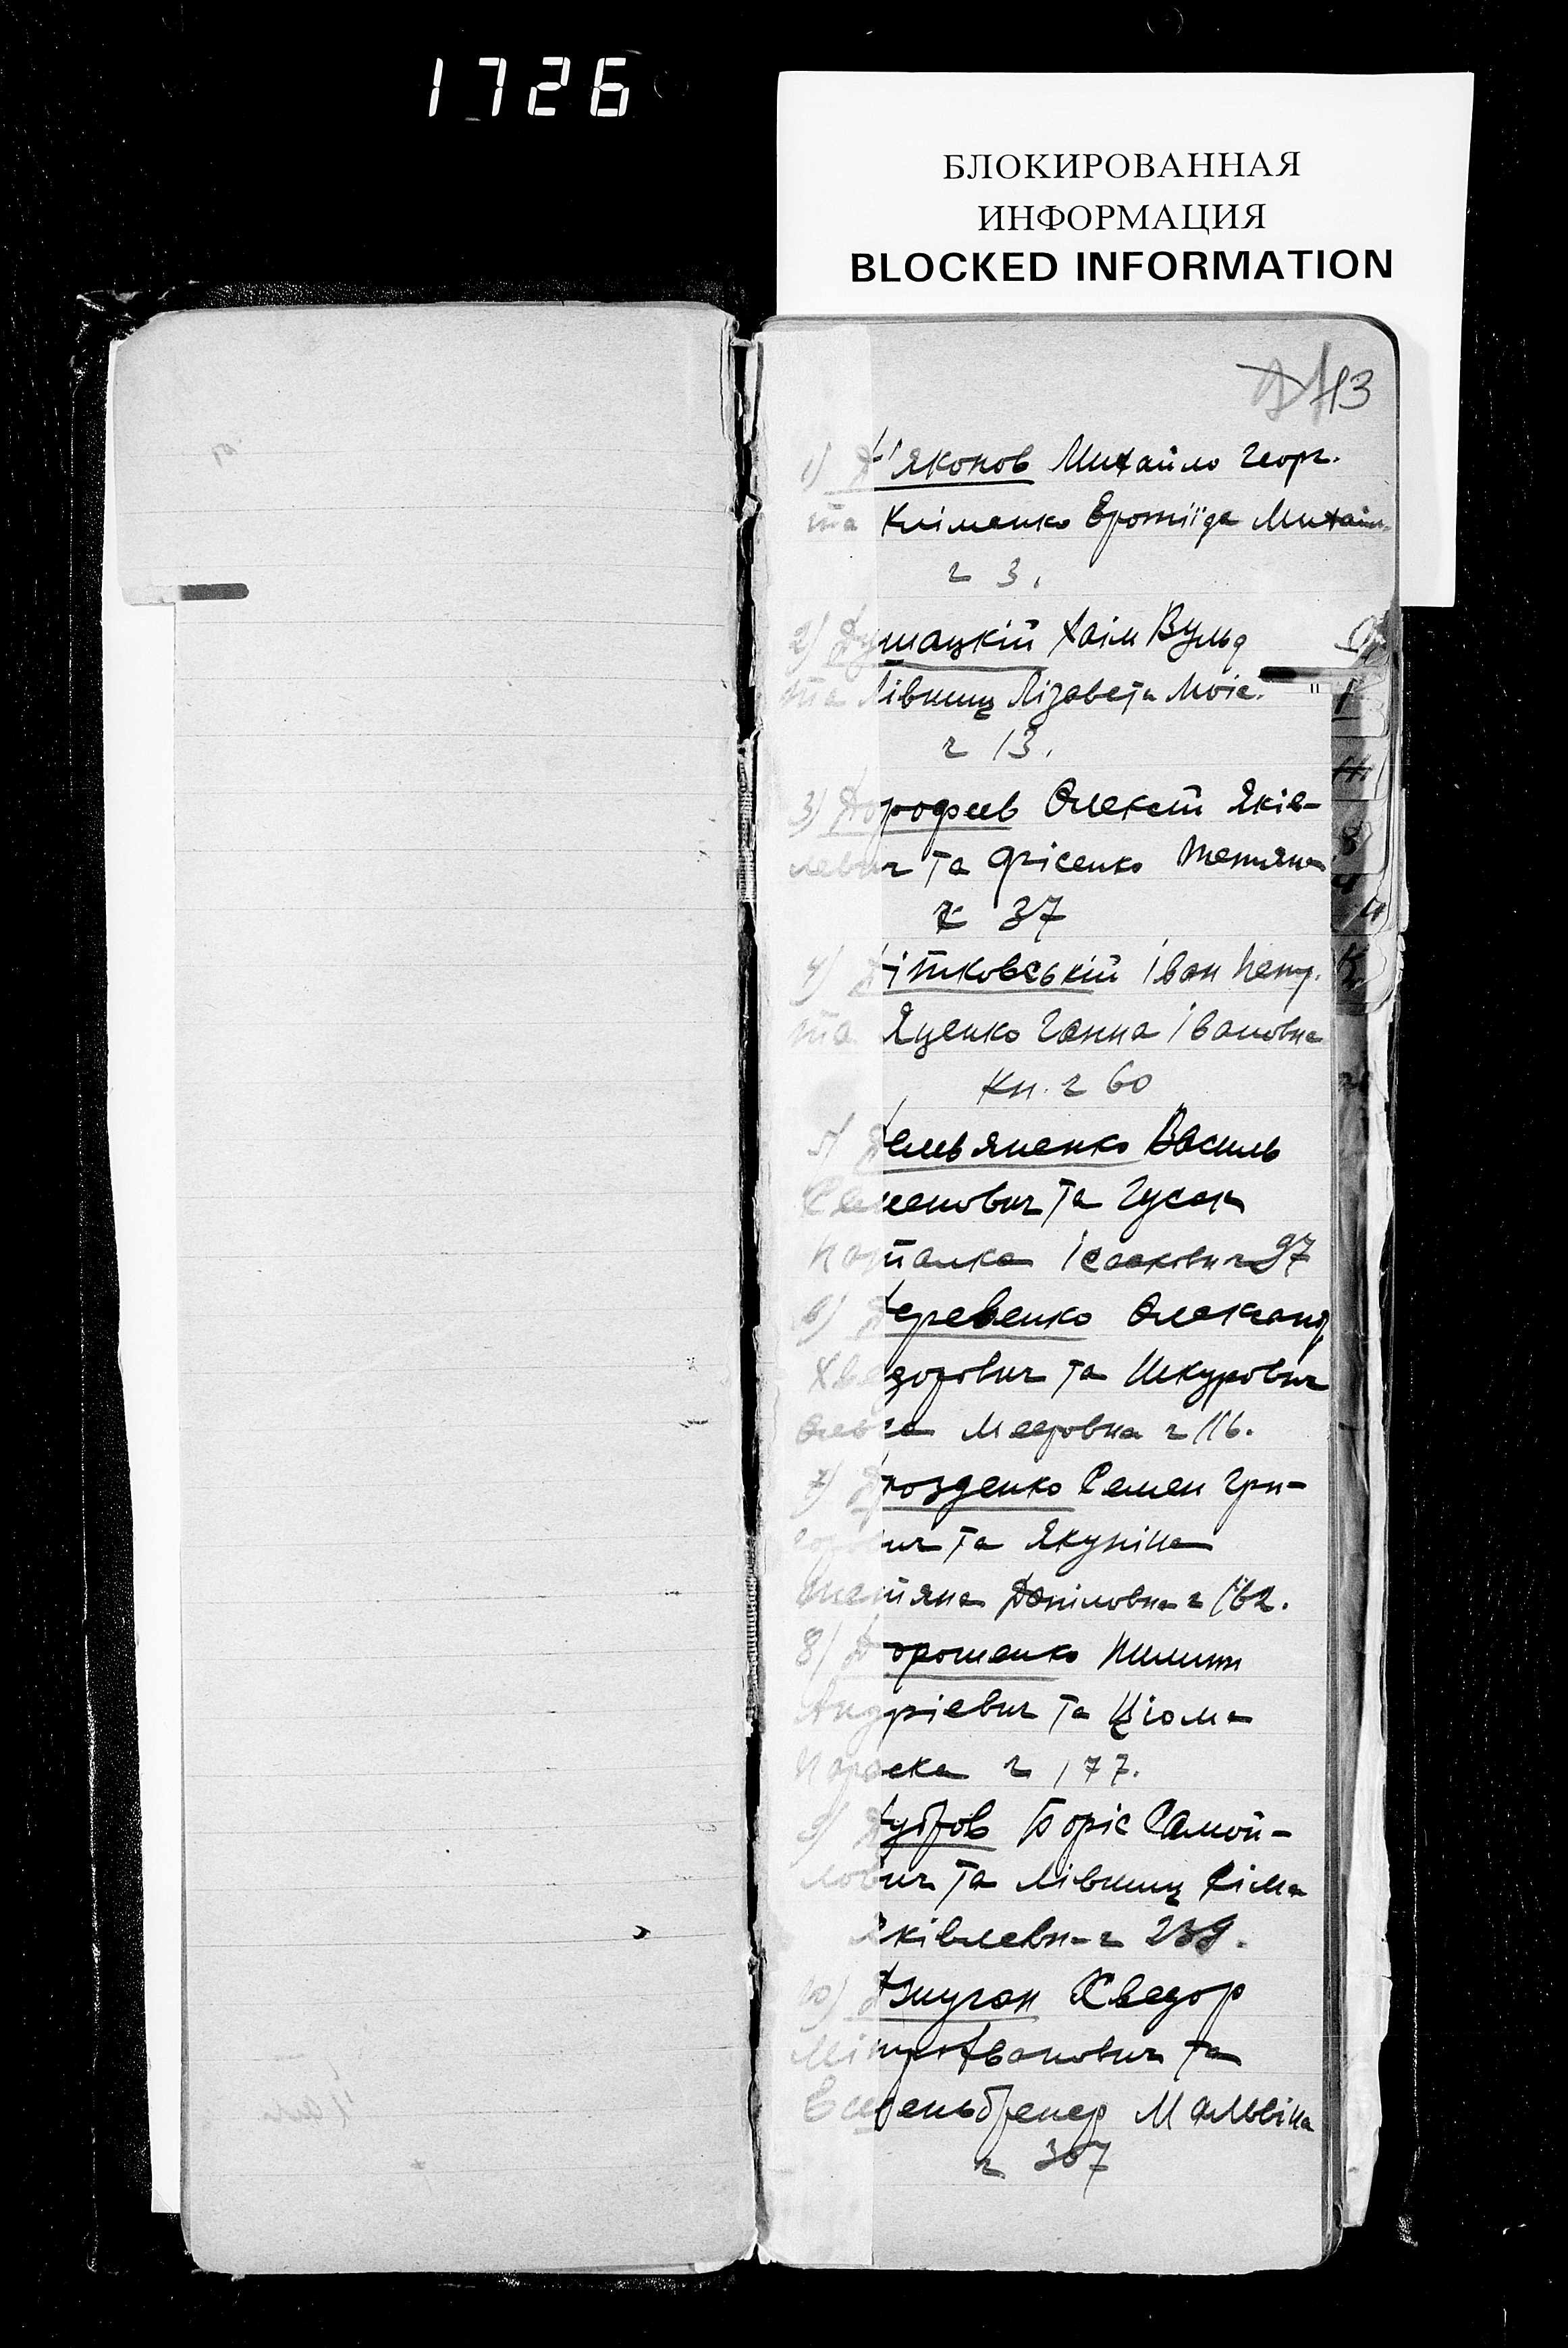 1726
БЛОКИРОВАННАЯ
ИНФОРМАЦИЯ
BLOCKED INFORMATION
Д 13
1) Д'яконов Михайло Георг.
та Кліменко Михайл.
ч 3.
2) Душацкій Хаім Вульф
та Лівшиц Лізавета Моіс.
ч 13.
3) Дорофеев Олексій Яків-
левич та Фрісенко Тетяна
ч 37
4) Дітковській Іван Петр.
та Яценко Ганна Івановна
Кн. ч 60
5) Демьяненко Василь
Семенович та Гусак
Ісаакович 97
6) Деревенко Олександ
Хведорович та Шкурович
Ольга Мееровна ч 116.
7) Дрозденко Семен Гри-
горович та Якуніна
Тетяна Даніловна ч 162.
8) Дорошенко Пилип
Андрієвич та Цюма
Параска ч 177.
9) Дубров Боріс Самой-
лович та Лівшиц Фіма
Яківлевн- ч 239.
10) Хведор
та
Мальвіна
ч 307